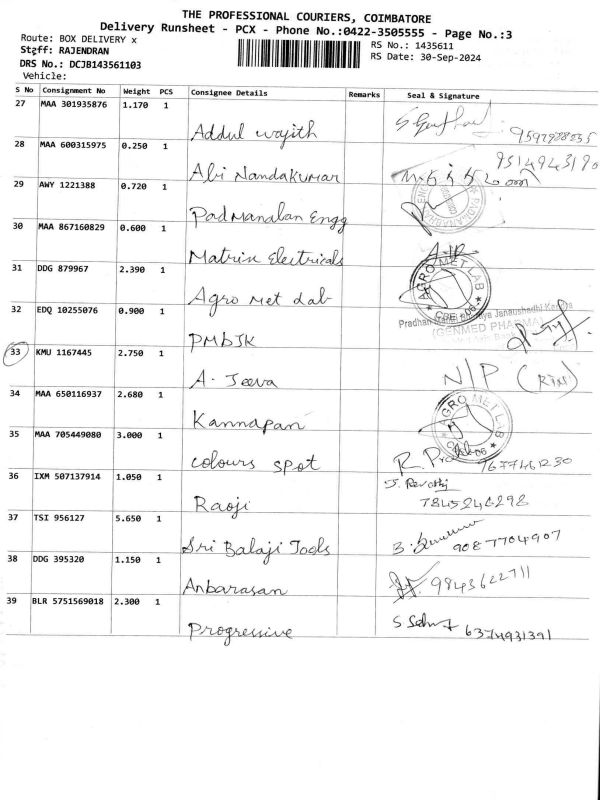 THE PROFESSIONAL COURIERS, COIMBATORE
Delivery Runsheet - PCX - Phone No.:0422-3505555 - Page No.:3
Route: BOX DELIVERY x
RS No.: 1435611
Staff: RAJENDRAN
RS Date: 30-Sep-2024
DRS No.: DCJB143561103
Vehicle:
S No Consignment No Weight PCS Consignee Details Remarks Seal & Signature
27 MAA 301935876 1.170 1
Addul wajith
28 MAA 600315975 0.250 1
Abi Nandakumar 9514943190
29 AWY 1221388 0.720 1
Padmanaban Engg
30 MAA 867160829 0.600 1
Matrix Electricals
31 DDG 879967 2.390 1
Agro Met Lab AGRO MET LAB
32 EDQ 10255076 0.900 1
PMBJK
(GENMED PHARMA)
33 KMU 1167445 2.750 1
A. Jeeva N/P
34 MAA 650116937 2.680 1
Kannapan AGRO MET LAB
35 MAA 705449080 3.000 1
colours spot 7677461230
36 IXM 507137914 1.050 1
Raoji J. Revathi
7845246298
37 TSI 956127 5.650 1
Sri Balaji Tools 9087704907
38 DDG 395320 1.150 1
Anbarasan 9843622711
39 BLR 5751569018 2.300 1
Progressive 6374931391